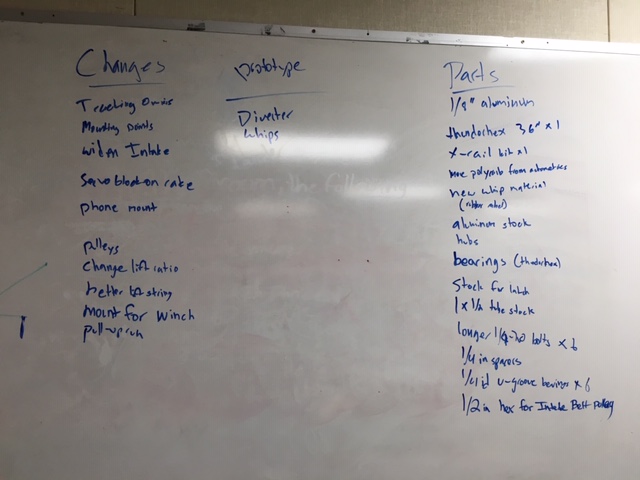 Changes
Tracking Omnis
Mounting points
widen Intake
Servo block on rake
phone mount
pulleys
Change lift ratio
better lift string
Mount for Winch
pull-up
prototype
Diverter
Whips
Parts
1/8" aluminum
thunderhex 36" x 1
x-rail kit x1
more polycarb from
new whip material
(rubber
aluminum stock
hubs
bearings (thunderhex)
Stock for latch
1 x 1/2 tube stock
longer 1/4-20 bolts x 6
1/4 in spacers
1/4 id v-groove bearings x 6
1/2 in hex for Intake Belt pulley